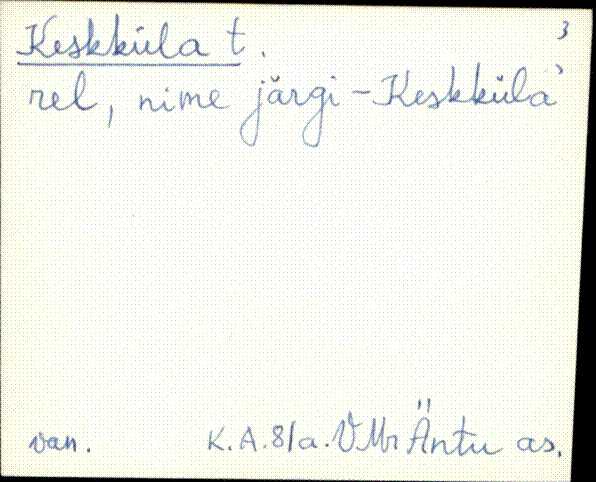 Keskküla t. 3
rel, nime järgi - Keskküla
van. K.A. 81a. VMr Äntu as.